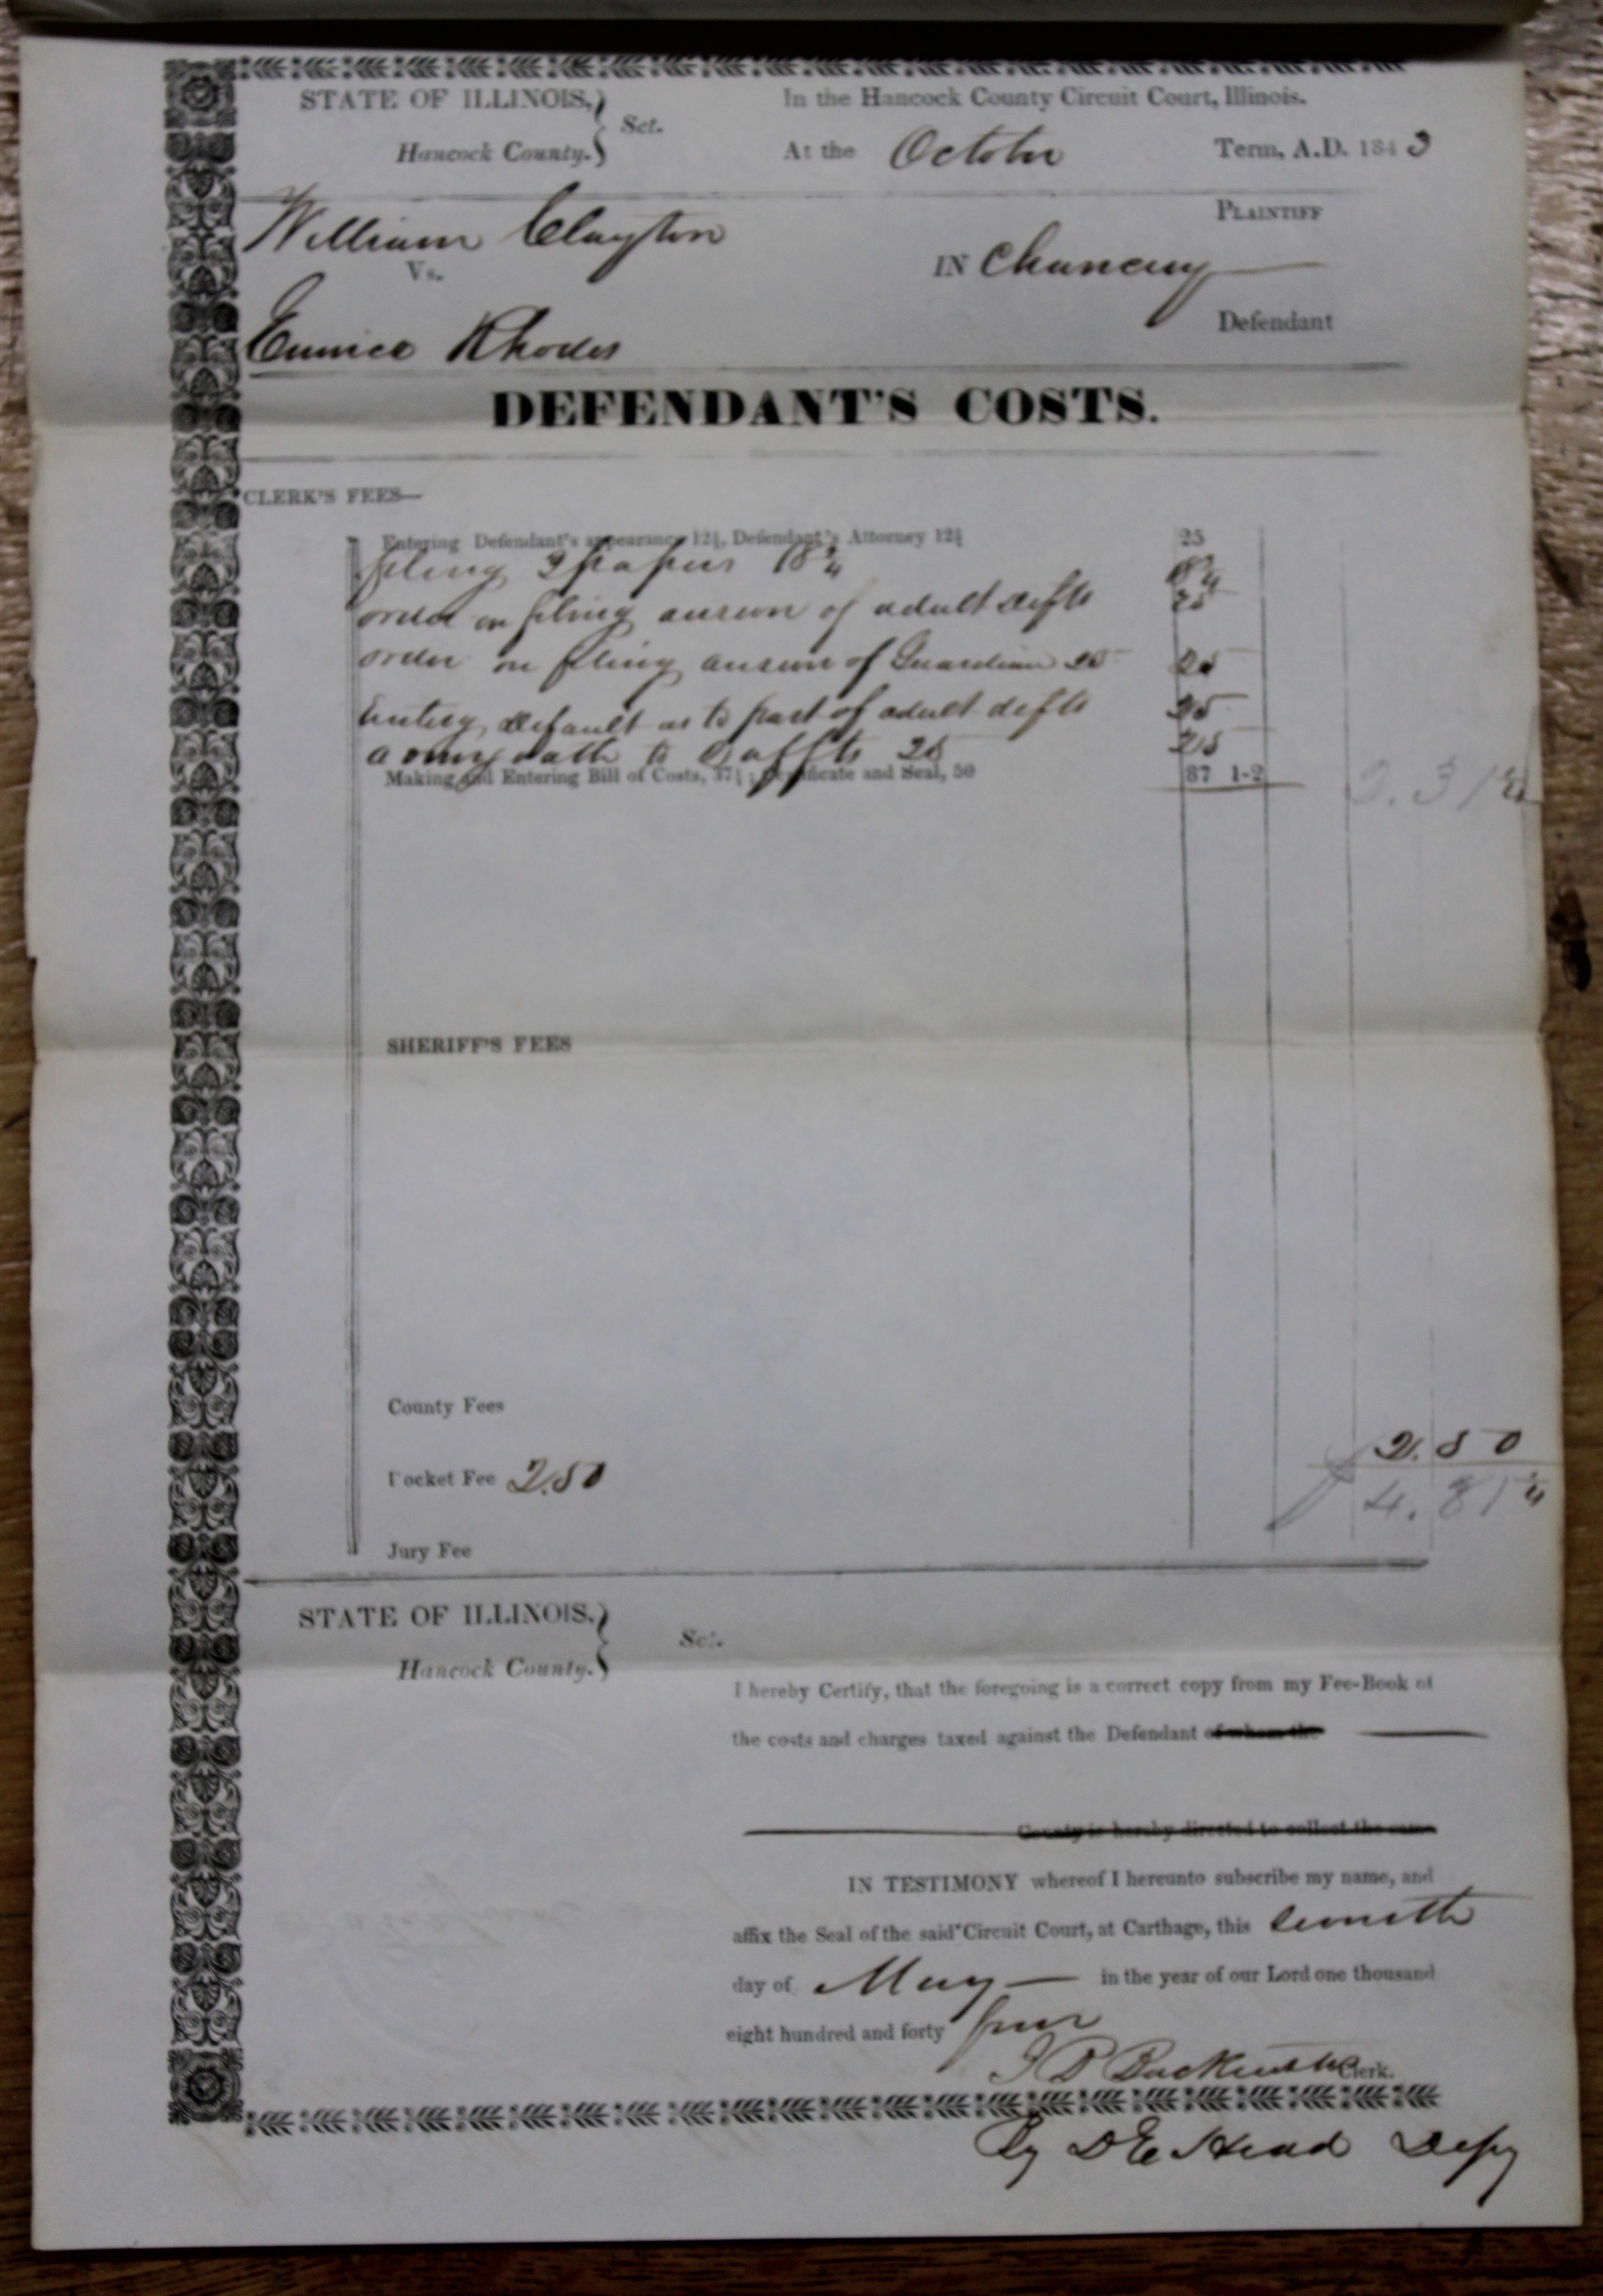 STATE OF ILLINOIS,
Hancock County.
Sct.
In the Hancock County Circuit Court, Illinois.
At the October Term, A.D. 1843
William Clayton
PLAINTIFF
Vs.
IN Chancery
Eunice Rhodes
Defendant
DEFENDANT'S COSTS.
CLERK'S FEES—
Entering Defendant's appearance 12½, Defendant's Attorney 12½ 25
filing 3 papers 18¾ 18¾
order on filing answer of adult defts 25
order on filing answer of Guardian 25 25
Enterg Default as to part of adult defts 25
oath to affts 25 25
Making and Entering Bill of Costs, 37½; Certificate and Seal, 50 87 1-2 2.31¼
SHERIFF'S FEES
County Fees
2.50
Docket Fee 2.50
4.81¼
Jury Fee
STATE OF ILLINOIS,
Hancock County.
Sct.
I hereby Certify, that the foregoing is a correct copy from my Fee-Book of
the costs and charges taxed against the Defendant of whom the
County is hereby directed to collect the same
IN TESTIMONY whereof I hereunto subscribe my name, and
affix the Seal of the said Circuit Court, at Carthage, this
day of May in the year of our Lord one thousand
eight hundred and forty four
J B Backenstos Clerk.
By D E Head Depy